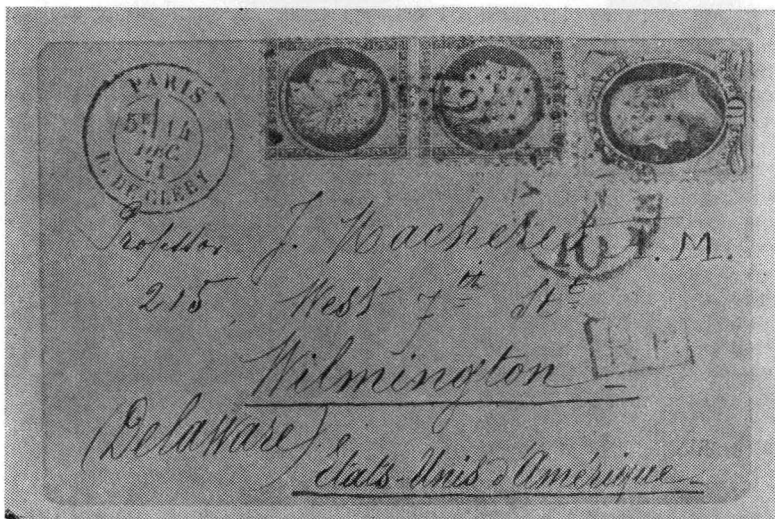 PARIS
5E/ 14
DEC.
71
R. DE CLERY
Professor J. Macheret S.M.
215, West 7th St
10
Wilmington
(Delaware)
États-Unis d'Amérique